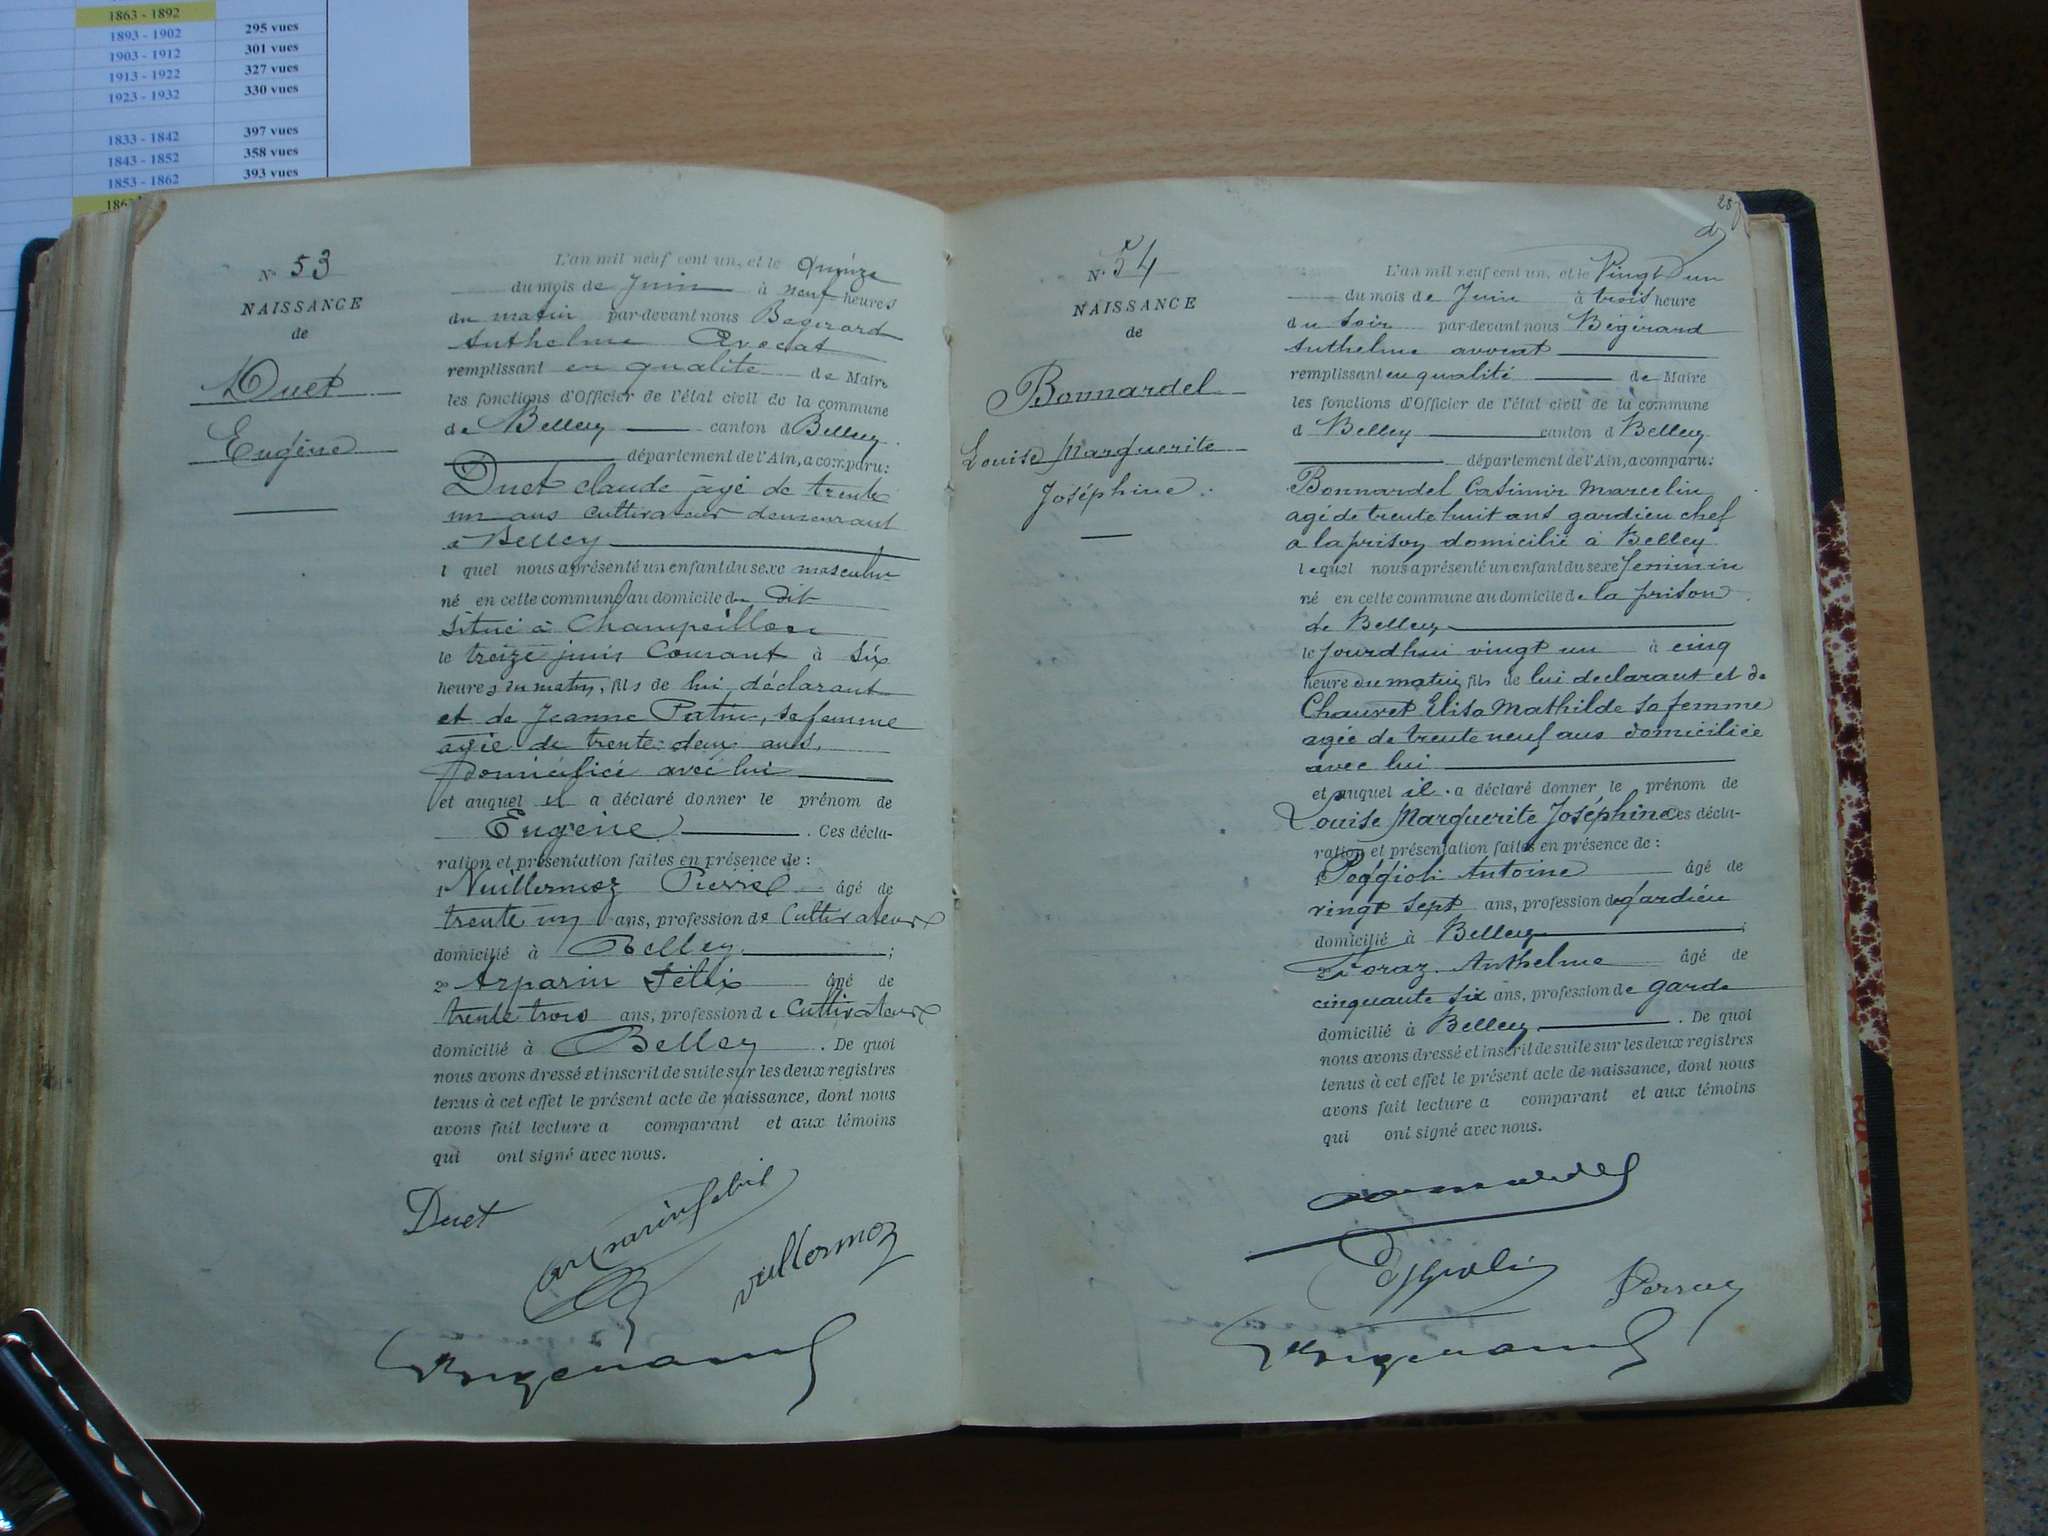 1863 - 1892
1893 - 1902 295 vues
1903 - 1912 301 vues
1913 - 1922 327 vues
1923 - 1932 330 vues
1833 - 1842 397 vues
1843 - 1852 358 vues
1853 - 1862 393 vues
N° 53
NAISSANCE
de
Duet
Eugène
L'an mil neuf cent un, et le Quinze
du mois de Juin à neuf heures
du matin par-devant nous Bégérard
Anthelme Avocat
remplissant en qualité de Maire
les fonctions d'Officier de l'état civil de la commune
de Belley canton d Belley
département de l'Ain, a comparu:
Duet claude âgé de trente
un ans cultivateur demeurant
à Belley
l quel nous a présenté un enfant du sexe masculin
né en cette commune au domicile du dit
situé à Champeillon
le treize juin Courant à six
heures du matin, fils de lui déclarant
et de Jeanne Patin, sa femme
agée de trente deux ans,
domiciliée avec lui
et auquel il a déclaré donner le prénom de
Eugène. Ces décla-
ration et présentation faites en présence de :
1° Vuillermoz Pierre âgé de
trente un ans, profession de Cultivateur
domicilié à Belley ;
2° Arparin Félix âgé de
trente trois ans, profession de Cultivateur
domicilié à Belley. De quoi
nous avons dressé et inscrit de suite sur les deux registres
tenus à cet effet le présent acte de naissance, dont nous
avons fait lecture a comparant et aux témoins
qui ont signé avec nous.
Duet
vuillermoz
N° 54
NAISSANCE
de
Bonnardel
Louise Marguerite
Joséphine.
L'an mil neuf cent un, et le Vingt Un
du mois de Juin à trois heure
du soir par-devant nous Bégérard
Anthelme avocat
remplissant en qualité de Maire
les fonctions d'Officier de l'état civil de la commune
d Belley canton d Belley
département de l'Ain, a comparu:
Bonnardel Casimir Marcelin
agé de trente huit ans gardien chef
a la prison domicilié à Belley
lequel nous a présenté un enfant du sexe feminin
né en cette commune au domicile de la prison
de Belley
le jourdhui vingt un à cinq
heure du matin, fils de lui declarant et de
Chauvet Elisa Mathilde sa femme
agée de trente neuf ans domiciliée
avec lui
et auquel il a déclaré donner le prénom de
Louise Marguerite Joséphine Ces décla-
ration et présentation faites en présence de :
1° Poggioli Antoine âgé de
vingt sept ans, profession de gardien
domicilié à Belley ;
2° Anthelme âgé de
cinquante six ans, profession de garde
domicilié à Belley. De quoi
nous avons dressé et inscrit de suite sur les deux registres
tenus à cet effet le présent acte de naissance, dont nous
avons fait lecture a comparant et aux témoins
qui ont signé avec nous.
Bonnardel
Poggioli